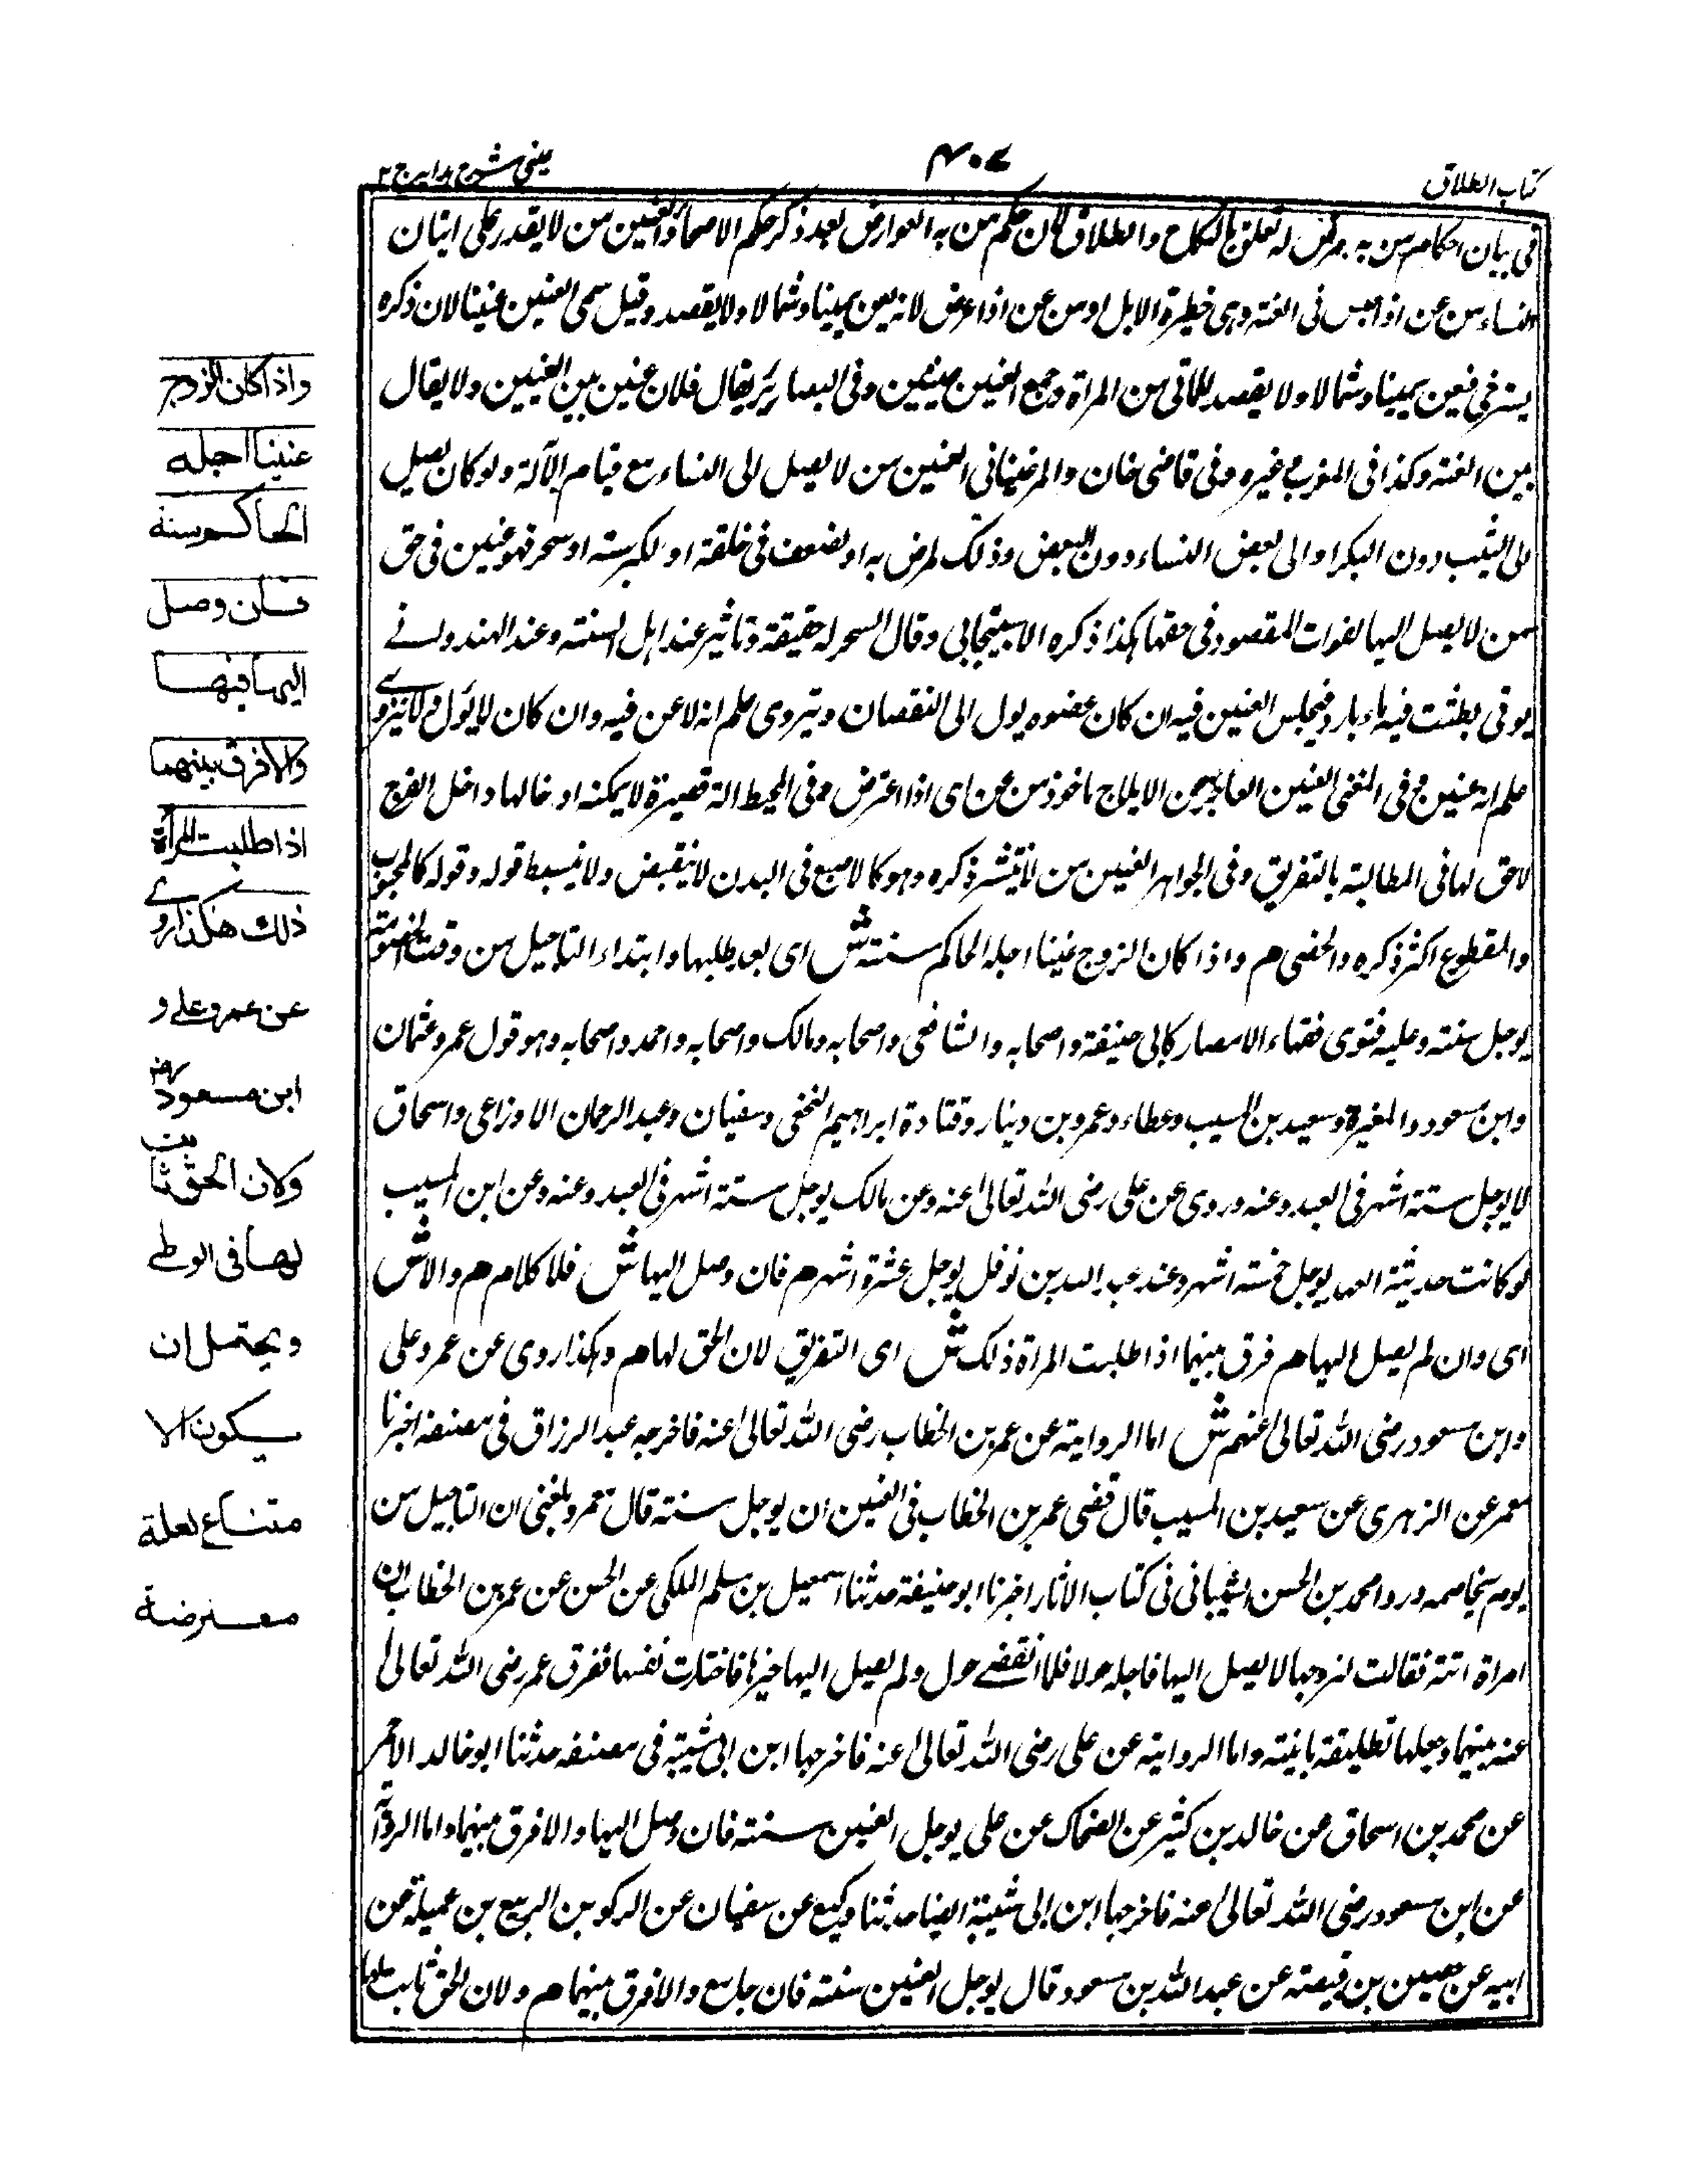 كتاب الطلاق
٤٠٧
عینی شرح هدایه ج ٢
فى بيان احكام من به مرض له تعلق بالنكاح والطلاق لان حكم من به العوارض بعد ذكر حكم الاصحاء والعنين من لا يقدر على اتيان
النساء من عن اذا حبس فى العنة وهى حظيرة الابل او من عن اذا عرض لانه يعن يمينا وشمالا ولا يقصد وقيل سمى العنين عنينا لان ذكره
يسترخى فيعن يمينا وشمالا ولا يقصد للماتى من المراة وجمع العنين عنينين وفى البصائر يقال فلان عنين بين العنين ولا يقال
بين العنة وكذا فى المغرب وغيره وفى قاضى خان والمرغينانى العنين من لا يصل الى النساء مع قيام الآلة ولو كان يصل
الى الثيب دون البكر او الى بعض النساء دون البعض وذلك لمرض به او لضعف فى خلقته او لكبر سنه او سحر فهو عنين فى حق
من لا يصل اليها لفوات المقصود فى حقها هكذا ذكره الاسبيجابى وقال السحر له حقيقة وتاثير عند اهل السنة وعند الهندوانے
يوتى بطشت فيه ماء بارد فيجلس العنين فيه ان كان عضوه يول الى النقصان وينزوى علم انه لا عن فيه وان كان لا يؤل ولا ينزوے
علم انه عنين وفى المغنى العنين العاجز عن الايلاج ماخوذ من عن اى اذا اعترض وفى المحيط الة قصيرة لا يمكنه ادخالها داخل الفرج
لا حق لها فى المطالبة بالتفريق وفى الجواهر العنين من لا ينتشر ذكره وهو كالاصبع فى البدن لا ينقبض ولا ينبسط قوله وقوله كالمجبوب
والمقطوع اكثر ذكره والخصى م واذا كان الزوج عنينا اجله الحاكم سنة ش اى بعد طلبها وابتداء التاجيل من وقت الخصومة
يوجل سنة وعليه فتوى فقهاء الامصار كابى حنيفة واصحابه والشافعى واصحابه ومالك واصحابه واحمد واصحابه وهو قول عمر وعثمان
وابن مسعود والمغيرة وسعيد بن المسيب وعطاء وعمرو بن دينار وقتادة ابراهيم النخعى وسفيان وعبد الرحمان الاوزاعى واسحاق
لا يوجل ستة اشهر فى العبد وعنه وروى عن على رضى الله تعالى عنه وعن مالك يوجل ستة اشهر فى العبد وعنه وعن ابن المسيب
لو كانت حديثة العهد يوجل خمسة اشهر وعند عبد الله بن نوفل يوجل عشرة اشهر م فان وصل اليها ش فلا كلام م والا ش
اى وان لم يصل اليها م فرق بينهما اذا طلبت المراة ذلك ش اى التفريق لان الحق لها م وهكذا روى عن عمر وعلى
وابن مسعود رضى الله تعالى عنهم ش اما الرواية عن عمر بن الخطاب رضى الله تعالى عنه فاخرجه عبد الرزاق فى مصنفه اخبرنا
معمر عن الزهرى عن سعيد بن المسيب قال قضى عمر بن الخطاب فى العنين ان يوجل سنة قال معمر وبلغنى ان التاجيل من
يوم يخاصمه وروا محمد بن الحسن الشيبانى فى كتاب الاثار اخبرنا ابو حنيفة حدثنا اسمعيل بن مسلم المكى عن الحسن عن عمر بن الخطاب ان
امراة اتته فقالت لزوجها لا يصل اليها فاجله حولا فلما انقضے حول ولم يصل اليها خيرها فاختارت نفسها ففرق عمر رضى الله تعالى
عنه بينهما وجعلها تطليقة بائنة واما الرواية عن على رضى الله تعالى عنه فاخرجها ابن ابى شيبة فى مصنفه حدثنا ابو خالد الاحمر
عن محمد بن اسحاق عن خالد بن كثير عن الضحاك عن على يوجل العنين سنة فان وصل اليها والا فرق بينهما واما الرواية
عن ابن مسعود رضى الله تعالى عنه فاخرجها ابن ابى شيبة ايضا حدثنا وكيع عن سفيان عن الركو بن الربيع بن عميلة عن
ابيه عن حصين بن قبيصة عن عبد الله بن مسعود قال يوجل العنين سنة فان جامع والا فرق بينهما م ولان الحق ثابت لها
واذا كان الزوج
عنينا اجله
الحاكم سنة
فان وصل
اليها فبها
والا فرق بينهما
اذا طلبت المرأة
ذلك هكذا روے
عن عمر وعلے و
ابن مسعود رض
ولان الحق ثابت
لها فى الوطے
ويحتمل ان
يكون الا
متناع لعلة
معترضة